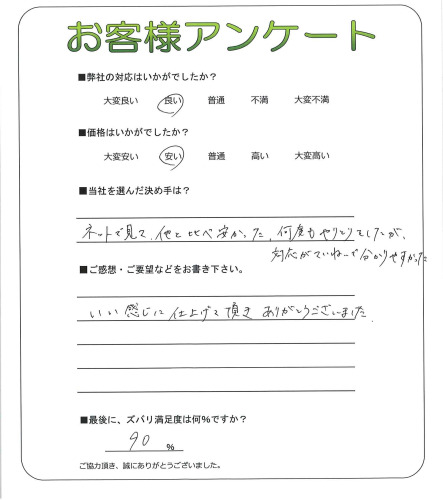 お客様アンケート
■弊社の対応はいかがでしたか?
大変良い 良い 普通 不満 大変不満
■価格はいかがでしたか?
大変安い 安い 普通 高い 大変高い
■当社を選んだ決め手は?
ネットで見て、他と比べ安かった、何度もやりとりをしたが、
対応がていねいで分かりやすかった
■ご感想・ご要望などをお書き下さい。
いい感じに仕上げて頂きありがとうございました。
■最後に、ズバリ満足度は何%ですか?
90 %
ご協力頂き、誠にありがとうございました。